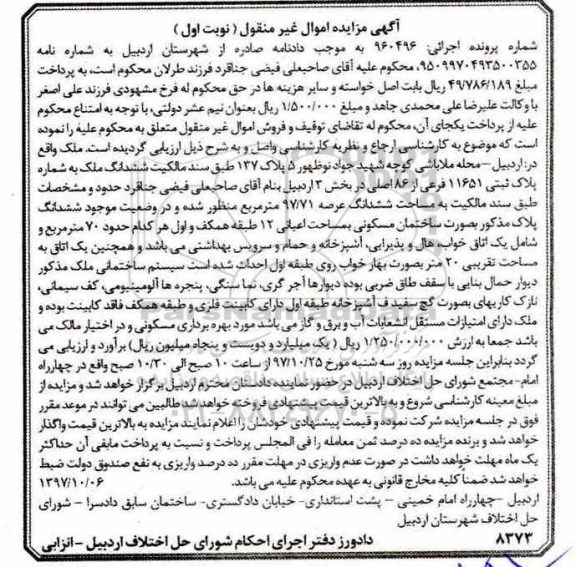 آگهی مزایده اموال غیر منقول ( نوبت اول )
شماره پرونده اجرائی: ۹۶۰۴۹۶ به موجب دادنامه صادره از شهرستان اردبیل به شماره نامه
۹۵۰۹۹۷۰۴۹۳۵۰۰۳۵۵، محکوم علیه آقای صاحبعلی فیضی جناقرد فرزند طرلان محکوم است، به پرداخت
مبلغ ۴۹/۷۸۶/۱۸۹ ریال بابت اصل خواسته و سایر هزینه ها در حق محکوم له فرخ مشهودی فرزند علی اصغر
با وکالت علیرضا علی محمدی جاهد و مبلغ ۱/۵۰۰/۰۰۰ ریال بعنوان نیم عشر دولتی، با توجه به امتناع محکوم
علیه از پرداخت یکجای آن، محکوم له تقاضای توقیف و فروش اموال غیر منقول متعلق به محکوم علیه را نموده
است که موضوع به کارشناسی ارجاع و نظریه کارشناسی واصل و به شرح ذیل ارزیابی گردیده است. ملک واقع
در: اردبیل – محله ملاباشی کوچه شهید جواد نوظهور د پلاک ۱۳۷ طبق سند مالکیت ششدانگ ملک به شماره
پلاک ثبتی ۱۱۶۵۱ فرعی از ۸۶ اصلی در بخش ۳ اردبیل بنام آقای صاحبعلی فیضی جناقرد حدود و مشخصات
طبق سند مالکیت به مساحت ششدانگ عرصه ۹۷/۷۱ مترمربع منظور شده و در وضعیت موجود ششدانگ
پلاک مذکور بصورت ساختمان مسکونی بمساحت اعیانی ۱۲ طبقه همکف و اول هر کدام حدود ۷۰ مترمربع و
شامل یک اتاق خواب، هال و پذیرایی، آشپزخانه و حمام و سرویس بهداشتی می باشد و همچنین یک اتاق به
مساحت تقریبی ۲۰ متر بصورت بهار خواب روی طبقه اول احداث شده است سیستم ساختمانی ملک مذکور
دیوار حمال بنایی با سقف طاق ضربی بوده دیوارها آجر گری، نما سنگی، پنجره ها آلومینیومی، کف سیمانی،
نازک کاریهای بصورت گچ سفید ف آشپزخانه طبقه اول دارای کابینت فلزی و طبقه همکف فاقد کابینت بوده و
ملک دارای امتیازات مستقل انشعابات آب و برق و گاز می باشد مورد بهره برداری مسکونی و در اختیار مالک می
باشد جمعا به ارزش ۱/۲۵۰/۰۰۰/۰۰۰ ریال ( یک میلیارد و دویست و پنجاه میلیون ریال) برآورد و ارزیابی می
گردد بنابراین جلسه مزایده روز سه شنبه مورخ ۹۷/۱۰/۲۵ از ساعت ۱۰ صبح الی ۱۰/۳۰ صبح واقع در چهارراه
امام- مجتمع شورای حل اختلاف اردبیل در حضور نماینده دادستان محترم اردبیل برگزار خواهد شد و مزایده از
مبلغ معینه کارشناسی شروع و به بالاترین قیمت پیشنهادی فروخته خواهد شد طالبین می توانند در موعد مقرر
فوق در جلسه مزایده شرکت نموده و قیمت پیشنهادی خودشان را اعلام نمایند مزایده به بالاترین قیمت واگذار
خواهد شد و برنده مزایده ده درصد ثمن معامله را فی المجلس پرداخت و نسبت به پرداخت مابقی آن حداکثر
یک ماه مهلت خواهد داشت در صورت عدم واریزی در مهلت مقرر ده درصد واریزی به نفع صندوق دولت ضبط
خواهد شد ضمناً کلیه مخارج قانونی به عهده محکوم علیه می باشد. ۱۳۹۷/۱۰/۰۶
اردبیل –چهارراه امام خمینی – پشت استانداری- خیابان دادگستری- ساختمان سابق دادسرا – شورای
حل اختلاف شهرستان اردبیل
دادورز دفتر اجرای احکام شورای حل اختلاف اردبیل – انزابی ۸۳۷۳